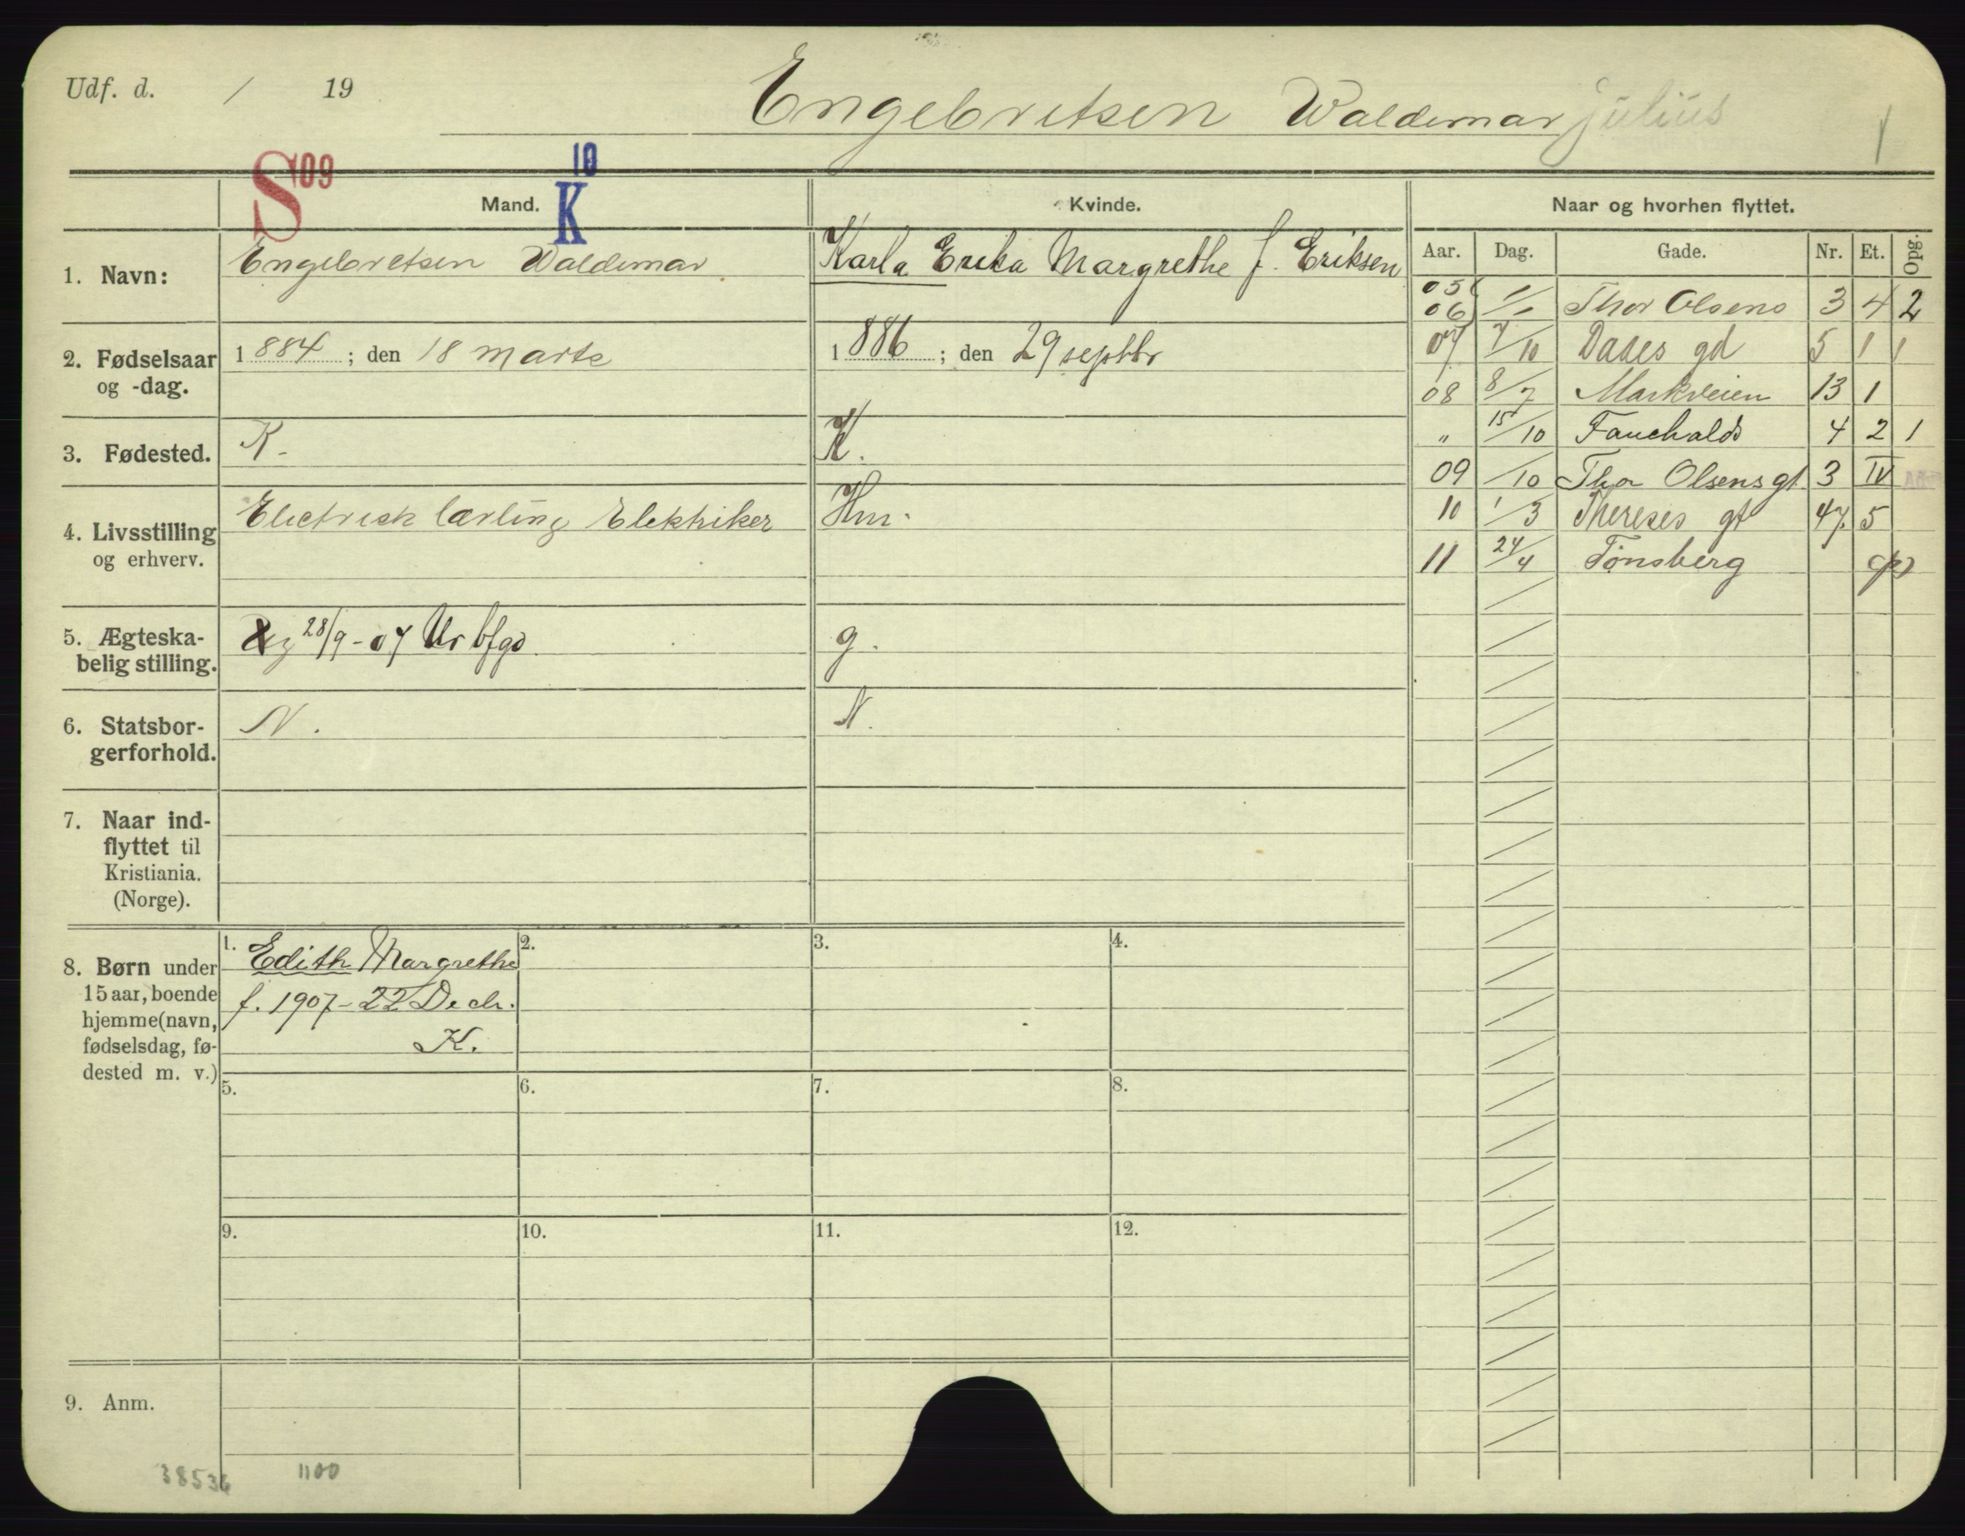 Udf. d. / 19
Engebretsen Waldemar julius
1
S 09
10 K
Mand.
Kvinde.
Naar og hvorhen flyttet.
Aar. Dag. Gade. Nr. Et. Opg.
1. Navn:
Engebretsen Waldemar
Karla Erika Margrethe f. Eriksen
2. Fødselsaar
og -dag.
1884; den 18 marts
1886; den 29 septbr
3. Fødested.
K.
K.
4. Livsstilling
og erhverv.
Electrisk lærling Elektriker
Hm.
5. Ægteska-
belig stilling.
g 28/9-07 Ur bfgd.
g.
6. Statsbor-
gerforhold.
N.
N.
7. Naar ind-
flyttet til
Kristiania.
(Norge).
05
06 / Thor Olsens 3 4 2
07 7/10 Daaes gd 5 1 1
08 8/7 Markveien 13 1
" 15/10 Fauchalds 4 2 1
09 /10 Thor Olsens gt. 3 IV
10 1/3 Thereses gt 47. 5
11 24/4 Tønsberg
8. Børn under
15 aar, boende
hjemme (navn,
fødselsdag, fø-
dested m. v.)
1. Edith Margrethe
f. 1907 - 22 Decbr.
K.
2.
3.
4.
5.
6.
7.
8.
9.
10.
11.
12.
9. Anm.
38536 1100